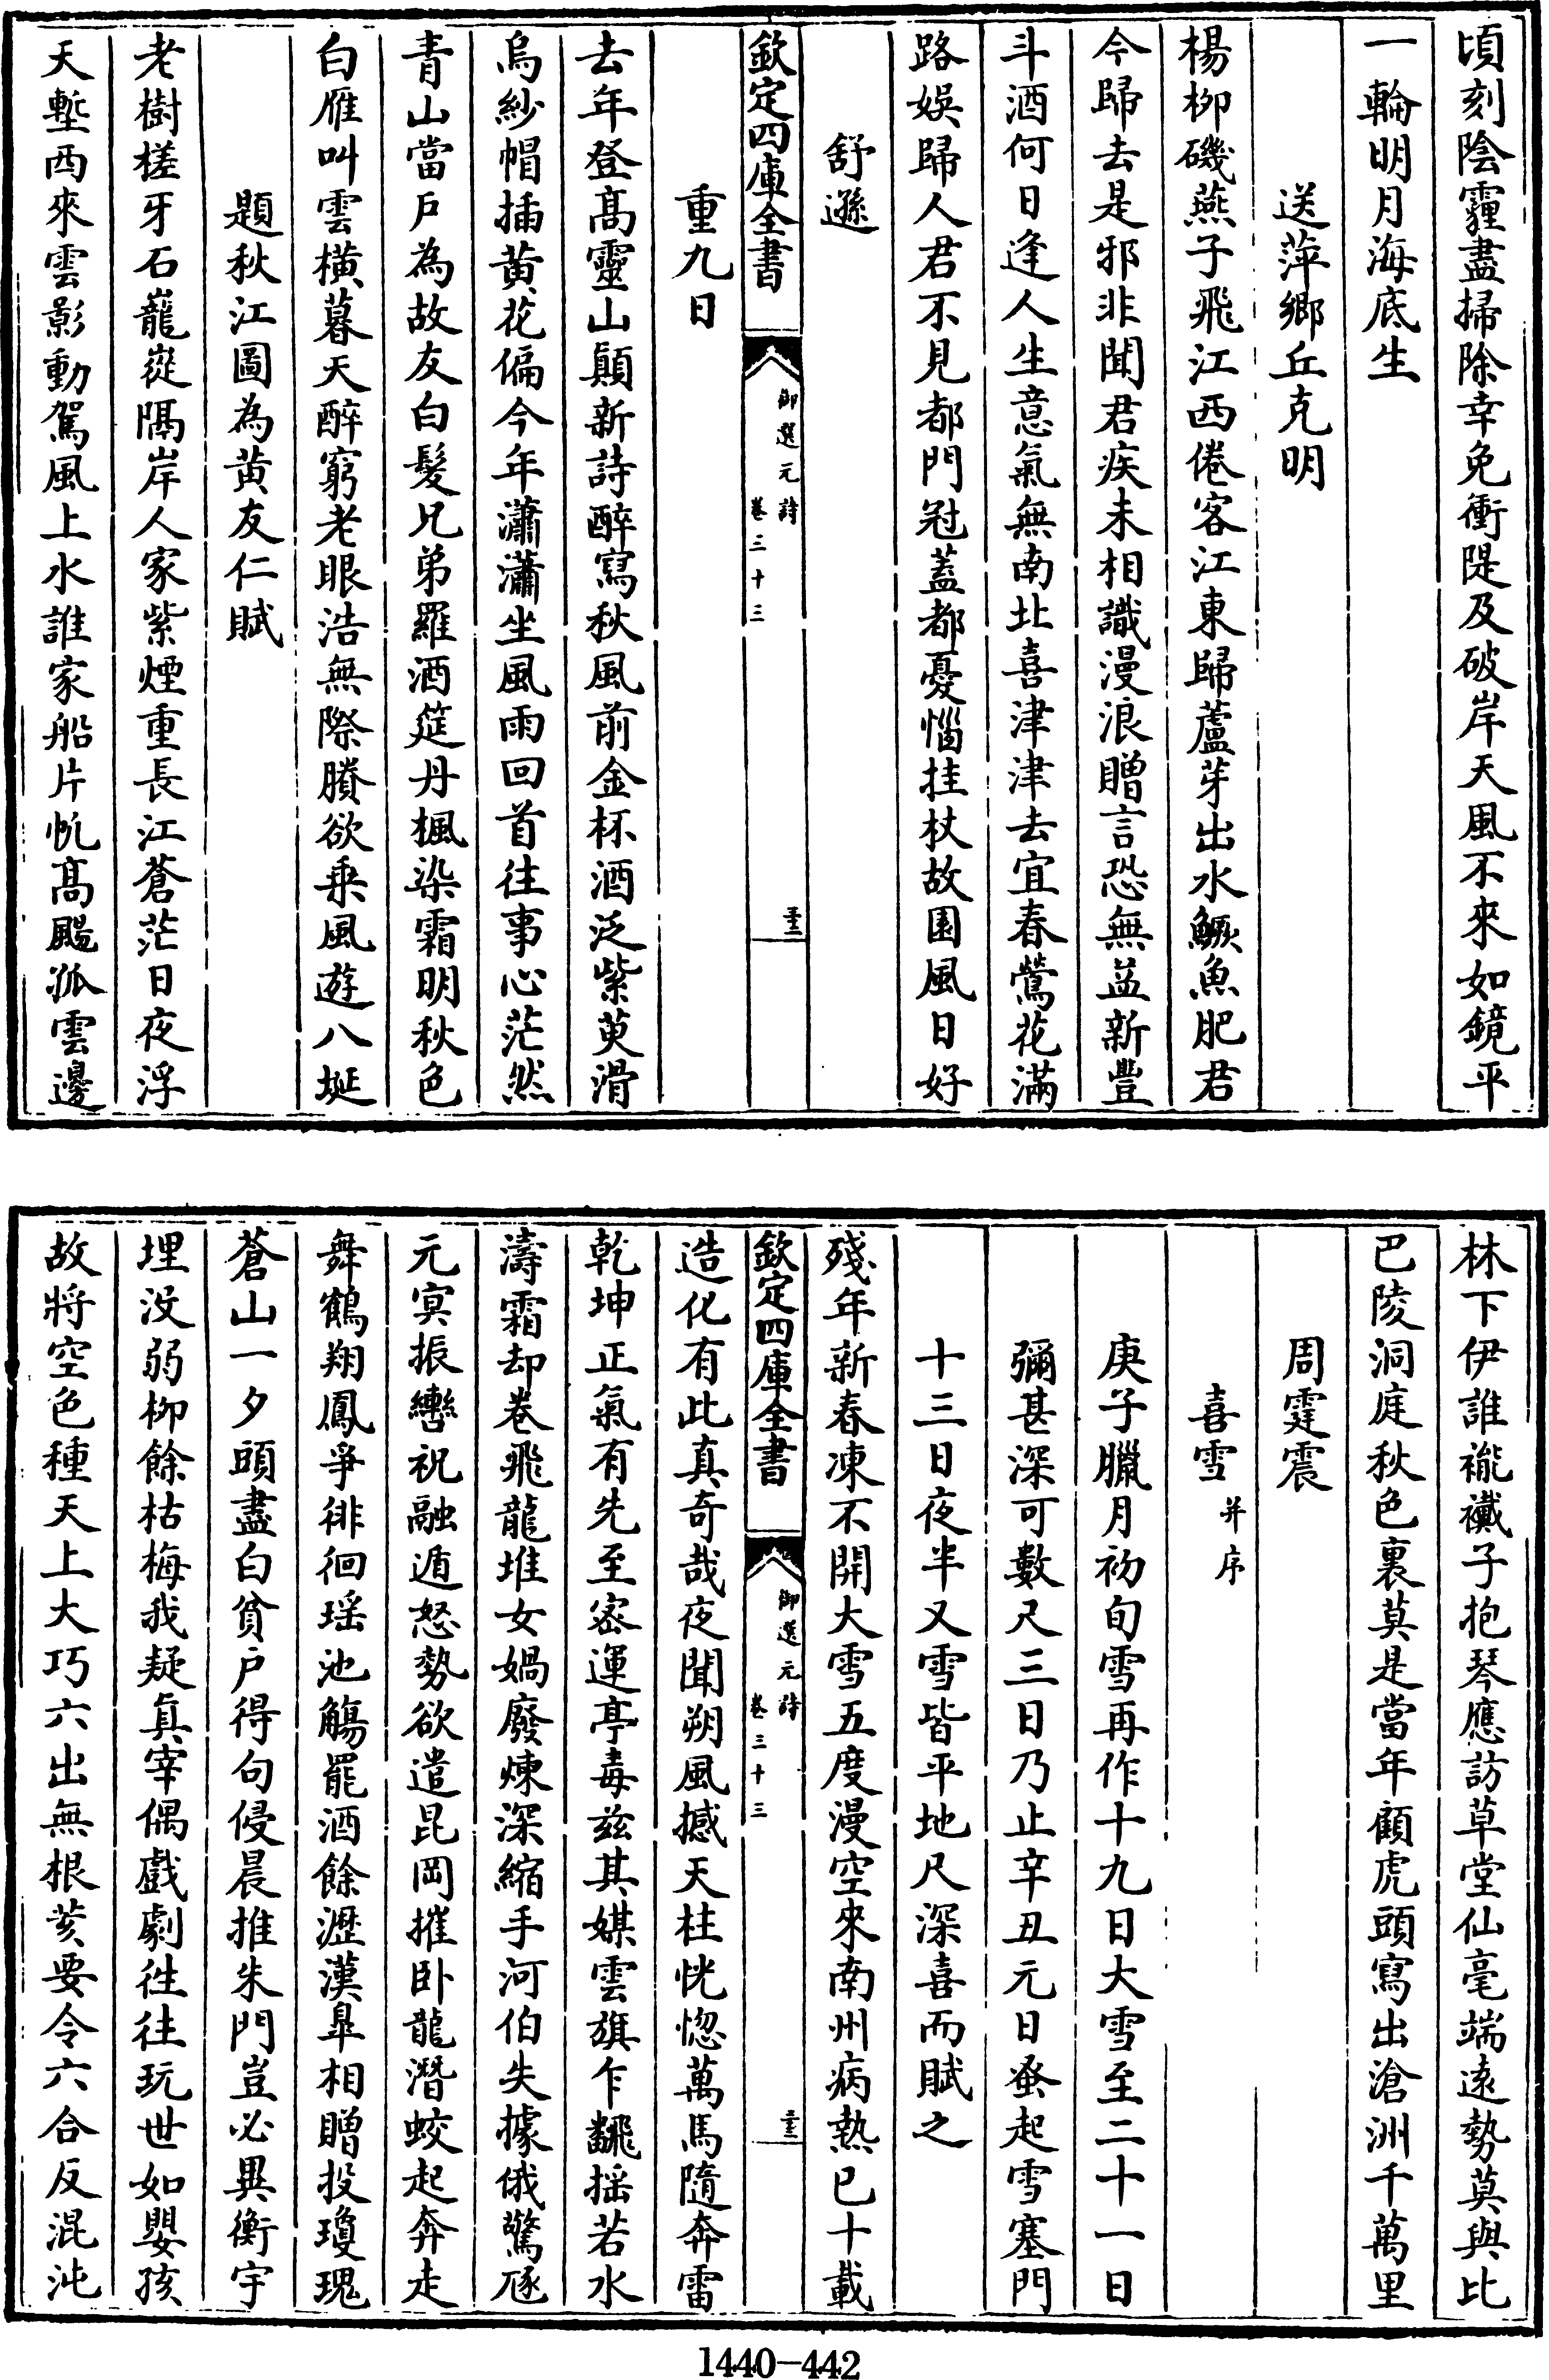 頃刻陰霾盡掃除幸免衝隄及破岸天風不來如鏡平
一輪明月海底生
送萍鄉丘克明
楊柳磯燕子飛江西倦客江東歸蘆芽出水鱖魚肥君
今歸去是邪非聞君疾未相識漫浪贈言恐無益新豐
斗酒何日逢人生意氣無南北喜津津去宜春鶯花滿
路娛歸人君不見都門冠蓋都憂惱挂杖故園風日好
舒遜
欽定四庫全書
御選元詩
卷三十三
重九日
去年登髙靈山顛新詩醉寫秋風前金杯酒泛紫萸滑
烏紗帽插黄花偏今年瀟瀟坐風雨回首往事心茫然
青山當戶為故友白髮兄弟羅酒筵丹楓染霜明秋色
白雁叫雲橫暮天醉窮老眼浩無際賸欲乘風遊八埏
題秋江圖為黄友仁賦
老樹槎牙石巃嵸隔岸人家紫煙重長江蒼茫日夜浮
天塹西來雲影動駕風上水誰家船片帆髙颺孤雲邊
林下伊誰襹襳子抱琴應訪草堂仙毫端遠勢莫與比
巴陵洞庭秋色裏莫是當年顧虎頭寫出滄洲千萬里
周霆震
喜雪并序
庚子臘月初旬雪再作十九日大雪至二十一日
彌甚深可數尺三日乃止辛丑元日蚤起雪塞門
十三日夜半又雪皆平地尺深喜而賦之
殘年新春凍不開大雪五度漫空來南州病熱已十載
欽定四庫全書
御選元詩
卷三十三
造化有此真奇哉夜聞朔風撼天柱恍惚萬馬隨奔雷
乾坤正氣有先至密運亭毒兹其媒雲旗乍飜揺若水
濤霜却卷飛龍堆女媧廢煉深縮手河伯失據俄驚豗
元㝠振轡祝融遁怒勢欲遣昆岡摧卧龍潛蛟起奔走
舞鶴翔鳳爭徘徊瑶池觴罷酒餘瀝漢臯相贈投瓊瑰
蒼山一夕頭盡白貧戶得句侵晨推朱門豈必異衡宇
埋没弱柳餘枯梅我疑真宰偶戲劇往往玩世如嬰孩
故將空色種天上大巧六出無根荄要令六合反混沌
1440-442